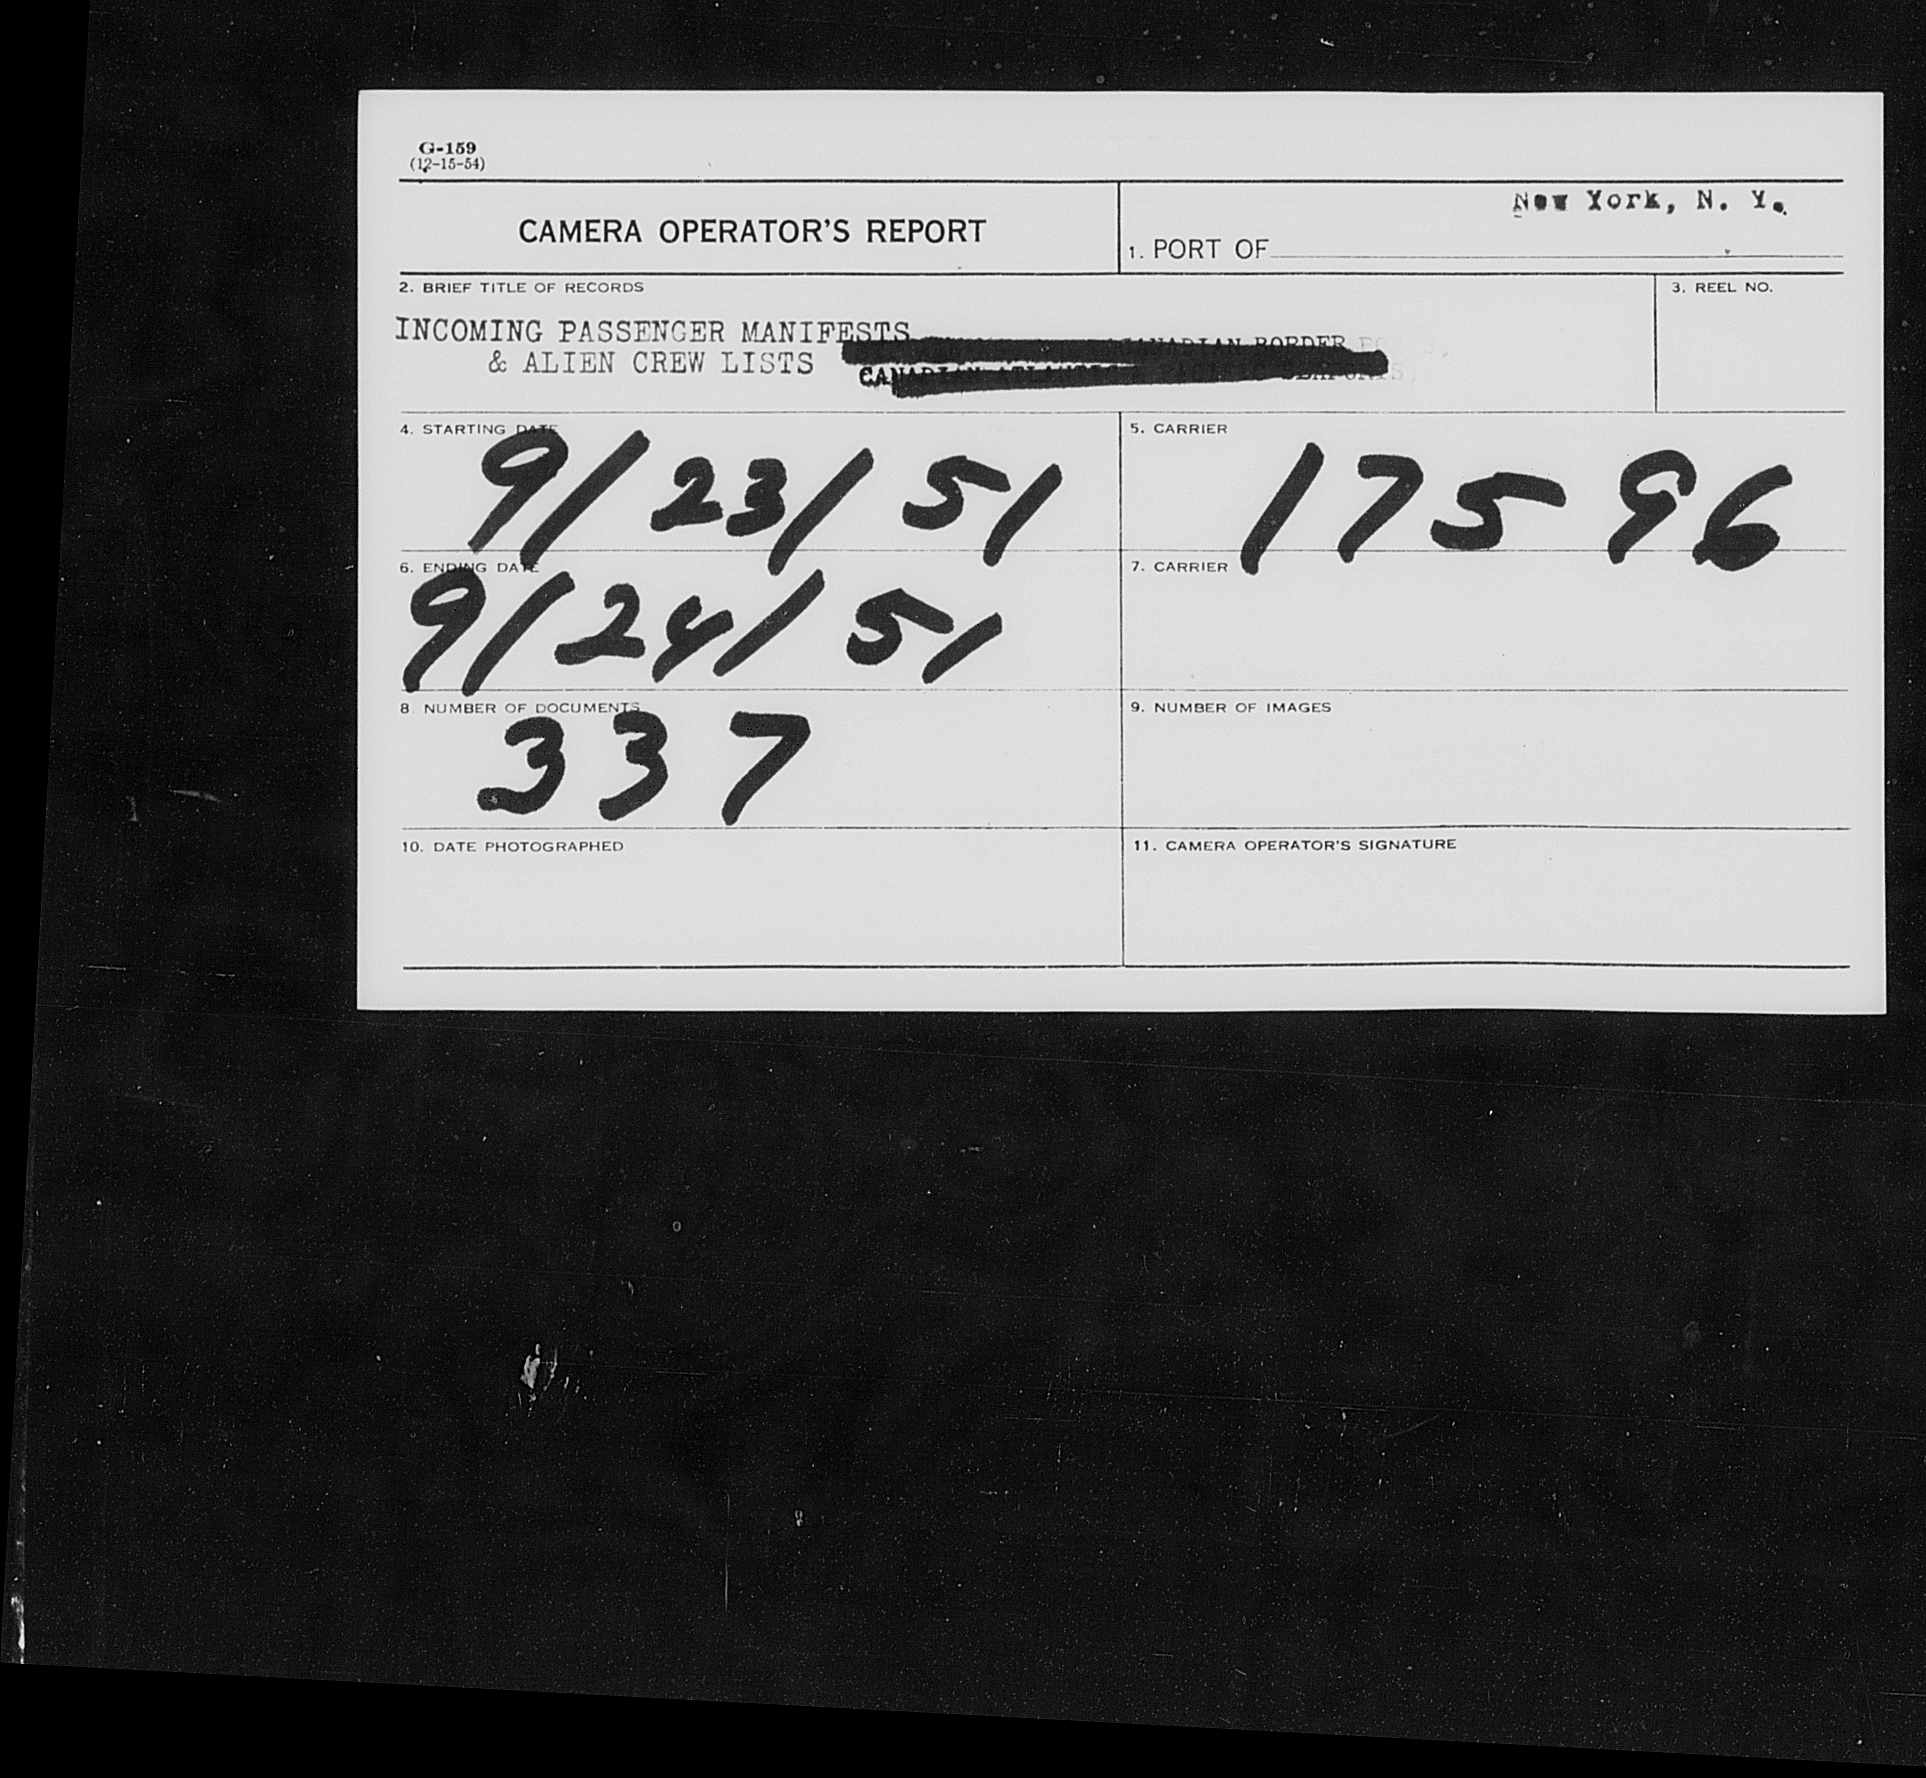 G-159
(12-15-54)
CAMERA OPERATOR'S REPORT
New York, N. Y.
1. PORT OF
2. BRIEF TITLE OF RECORDS
3. REEL NO.
INCOMING PASSENGER MANIFESTS
& ALIEN CREW LISTS
CANADIAN BORDER
CANADIAN ATLANTIC PACIFIC SEAPORTS
4. STARTING DATE
9/23/51
5. CARRIER
17596
6. ENDING DATE
9/24/51
7. CARRIER
8. NUMBER OF DOCUMENTS
337
9. NUMBER OF IMAGES
10. DATE PHOTOGRAPHED
11. CAMERA OPERATOR'S SIGNATURE